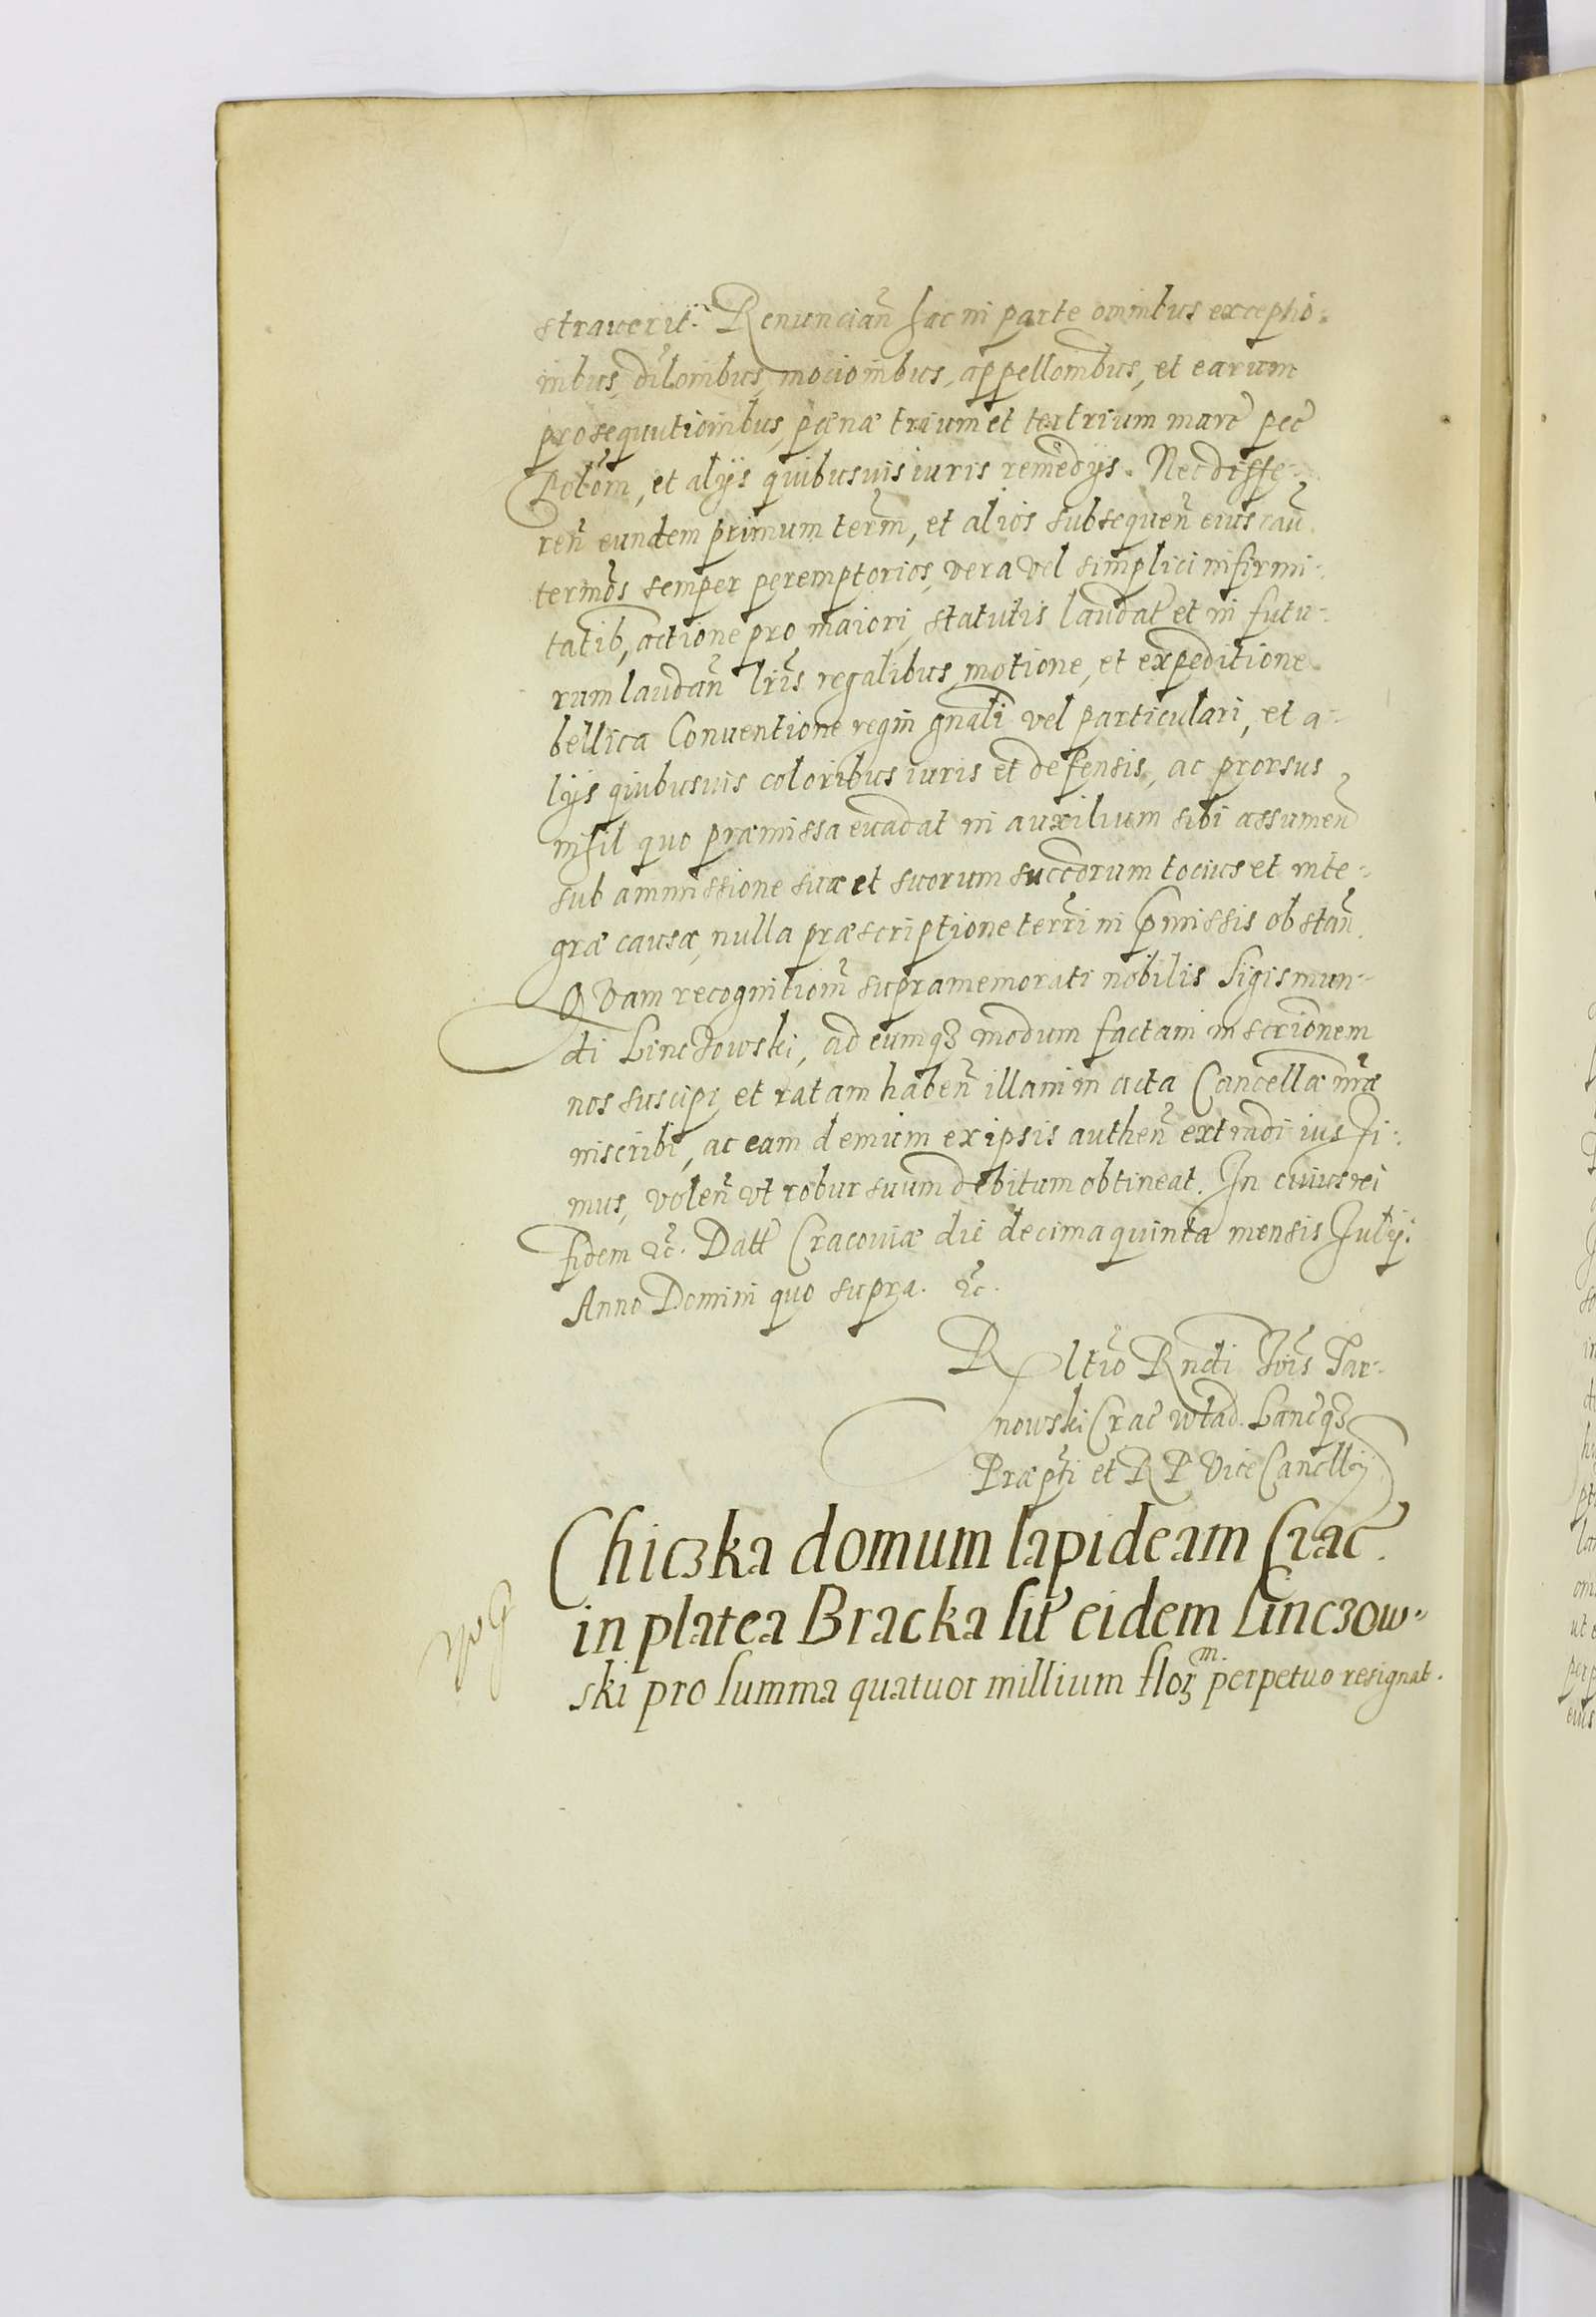 straverit. Renuncian̄ hac in parte omnibus exceptio-
nibus, dilõnibus, mocionibus, appellõnibus, et earum
prosequutionibus, pœnæ trium et ter trium marc̄ pec̄
Polõm, et alijs quibusvis iuris remedijs. Nec diffe-
ren̄ eundem primum term̄, et alios subsequen̄ eius cau̅
term̄os semper peremptorios, vera vel simplici infirmi-
tatib, actione pro maiori, statutis laudat̄ et in futu-
rum laudan̄ lr̄is regalibus, motione, et expeditione
bellica Conventione regn̄ gn̄ali vel particulari, et a-
lijs quibusvis coloribus iuris et defensis, ac prorsus
nihil quo præmissa evadat in auxilium sibi assumen̄
sub ammissione suæ et suorum succ̄orum tocius et inte-
græ causæ, nulla præscriptione terr̄i in p̄missis obstan̄.
QVam recognitiom̄ supramemorati nobilis Sigismun-
di Linczowski, ad eumq3 modum factam inscriōnem
nos suscipi et ratam haben̄ illam in acta Cancellæ nr̄æ
inscribi, ac eam demum ex ipsis authen̄ extradi iussi-
mus, volen̄ vt robur suum debitum obtineat. In cuius rei
fidem ꝛc̄. Datt̄ Cracoviæ die decima quinta mensis Julij.
Anno Domini quo supra. ꝛc̄.
Rltio Rndi Jōis Tar-
nowski Crac̄ wlad. Lanc̄q3
Præpti et R P Vice Cancllÿ
Chiczka domum lapideam Crac̄.
in platea Bracka sit̄ eidem Linczow-
ski pro summa quatuor millium floꝝ m. perpetuo resignat.